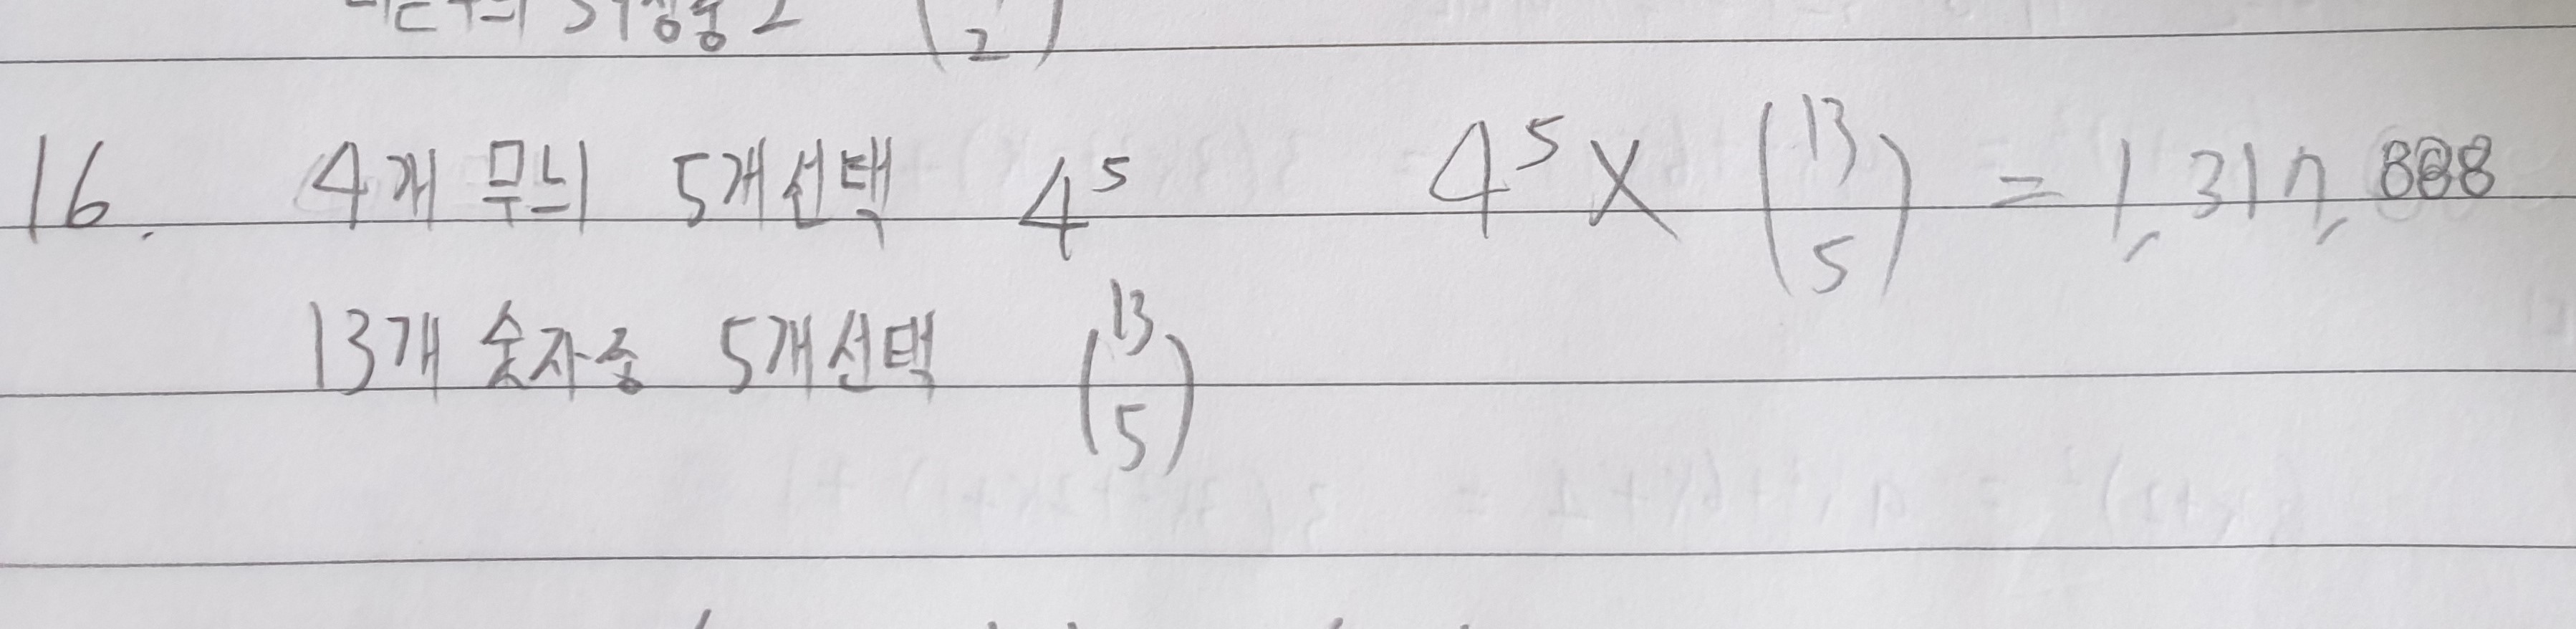 16. 4개 무늬 5개선택 4⁵ 4⁵ × (13 5) = 1,317,888
13개 숫자중 5개선택 (13 5)